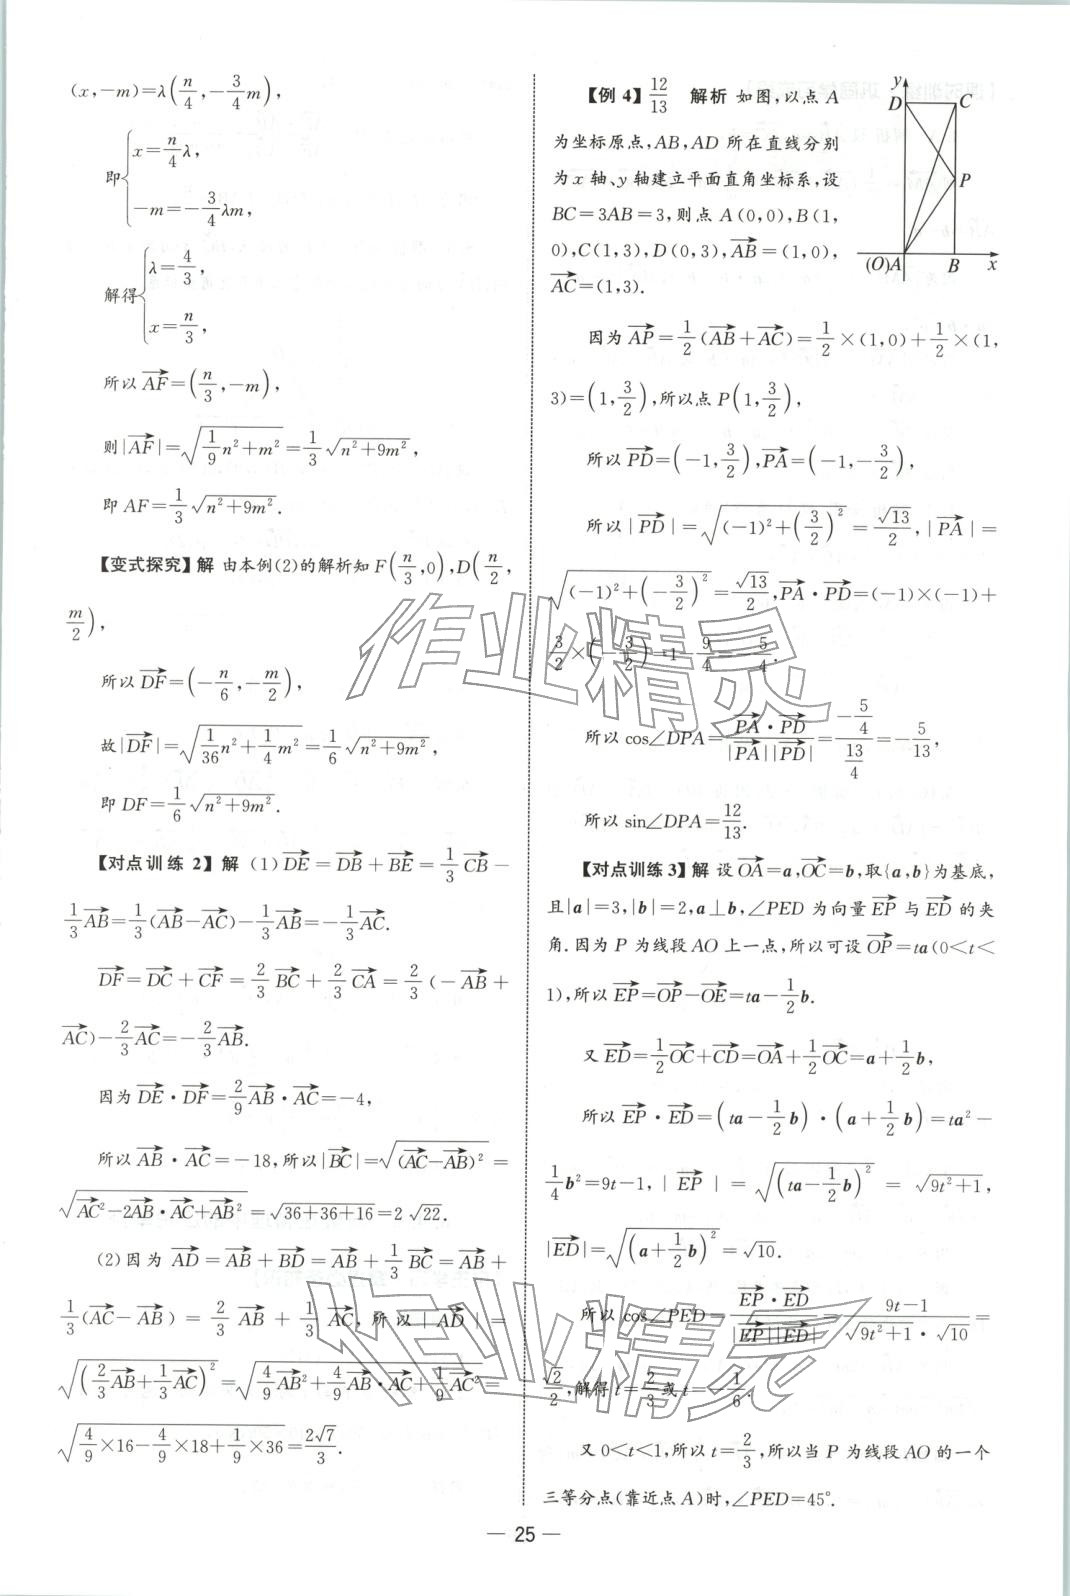 (x,-m)=λ(n/4,-3/4 m),
即{x=n/4 λ,
-m=-3/4 λm,
解得{λ=4/3,
x=n/3,
所以 \overrightarrow{AF}=(n/3,-m),
则|\overrightarrow{AF}|=√(1/9 n²+m²)=1/3 √(n²+9m²),
即 AF=1/3 √(n²+9m²).
【变式探究】解 由本例(2)的解析知 F(n/3,0),D(n/2,
m/2),
所以 \overrightarrow{DF}=(-n/6,-m/2),
故|\overrightarrow{DF}|=√(1/36 n²+1/4 m²)=1/6 √(n²+9m²),
即 DF=1/6 √(n²+9m²).
【对点训练 2】解 (1)\overrightarrow{DE}=\overrightarrow{DB}+\overrightarrow{BE}=1/3 \overrightarrow{CB}-
1/3 \overrightarrow{AB}=1/3(\overrightarrow{AB}-\overrightarrow{AC})-1/3 \overrightarrow{AB}=-1/3 \overrightarrow{AC}.
\overrightarrow{DF}=\overrightarrow{DC}+\overrightarrow{CF}=2/3 \overrightarrow{BC}+2/3 \overrightarrow{CA}=2/3(-\overrightarrow{AB}+
\overrightarrow{AC})-2/3 \overrightarrow{AC}=-2/3 \overrightarrow{AB}.
因为 \overrightarrow{DE}·\overrightarrow{DF}=2/9 \overrightarrow{AB}·\overrightarrow{AC}=-4,
所以 \overrightarrow{AB}·\overrightarrow{AC}=-18,所以|\overrightarrow{BC}|=√((\overrightarrow{AC}-\overrightarrow{AB})²)=
√(\overrightarrow{AC}²-2\overrightarrow{AB}·\overrightarrow{AC}+\overrightarrow{AB}²)=√(36+36+16)=2√22.
(2)因为 \overrightarrow{AD}=\overrightarrow{AB}+\overrightarrow{BD}=\overrightarrow{AB}+1/3 \overrightarrow{BC}=\overrightarrow{AB}+
1/3(\overrightarrow{AC}-\overrightarrow{AB})=2/3 \overrightarrow{AB}+1/3 \overrightarrow{AC},所以|\overrightarrow{AD}|=
√((2/3 \overrightarrow{AB}+1/3 \overrightarrow{AC})²)=√(4/9 \overrightarrow{AB}²+4/9 \overrightarrow{AB}·\overrightarrow{AC}+1/9 \overrightarrow{AC}²)=
√(4/9×16-4/9×18+1/9×36)=2√7/3.
【例 4】12/13 解析 如图,以点 A
为坐标原点,AB,AD 所在直线分别
为 x 轴、y 轴建立平面直角坐标系,设
BC=3AB=3,则点 A(0,0),B(1,
0),C(1,3),D(0,3),\overrightarrow{AB}=(1,0),
\overrightarrow{AC}=(1,3).
y
D
C
P
(O)A
B
x
因为 \overrightarrow{AP}=1/2(\overrightarrow{AB}+\overrightarrow{AC})=1/2×(1,0)+1/2×(1,
3)=(1,3/2),所以点 P(1,3/2),
所以 \overrightarrow{PD}=(-1,3/2),\overrightarrow{PA}=(-1,-3/2),
所以|\overrightarrow{PD}|=√((-1)²+(3/2)²)=√13/2,|\overrightarrow{PA}|=
√((-1)²+(-3/2)²)=√13/2,\overrightarrow{PA}·\overrightarrow{PD}=(-1)×(-1)+
3/2×(-3/2)=1-9/4=-5/4.
所以 cos∠DPA=\overrightarrow{PA}·\overrightarrow{PD}/(|\overrightarrow{PA}||\overrightarrow{PD}|)=(-5/4)/(13/4)=-5/13,
所以 sin∠DPA=12/13.
【对点训练 3】解 设 \overrightarrow{OA}=a,\overrightarrow{OC}=b,取{a,b}为基底,
且|a|=3,|b|=2,a⊥b,∠PED 为向量 \overrightarrow{EP} 与 \overrightarrow{ED} 的夹
角.因为 P 为线段 AO 上一点,所以可设 \overrightarrow{OP}=ta(0<t<
1),所以 \overrightarrow{EP}=\overrightarrow{OP}-\overrightarrow{OE}=ta-1/2 b.
又 \overrightarrow{ED}=1/2 \overrightarrow{OC}+\overrightarrow{CD}=\overrightarrow{OA}+1/2 \overrightarrow{OC}=a+1/2 b,
所以 \overrightarrow{EP}·\overrightarrow{ED}=(ta-1/2 b)·(a+1/2 b)=ta²-
1/4 b²=9t-1,|\overrightarrow{EP}|=√((ta-1/2 b)²)=√(9t²+1),
|\overrightarrow{ED}|=√((a+1/2 b)²)=√10.
所以 cos∠PED=\overrightarrow{EP}·\overrightarrow{ED}/(|\overrightarrow{EP}||\overrightarrow{ED}|)=(9t-1)/(√(9t²+1)·√10)=
√2/2,解得 t=2/3 或 t=-1/6.
又 0<t<1,所以 t=2/3,所以当 P 为线段 AO 的一个
三等分点(靠近点 A)时,∠PED=45°.
— 25 —
作业精灵
作业精灵